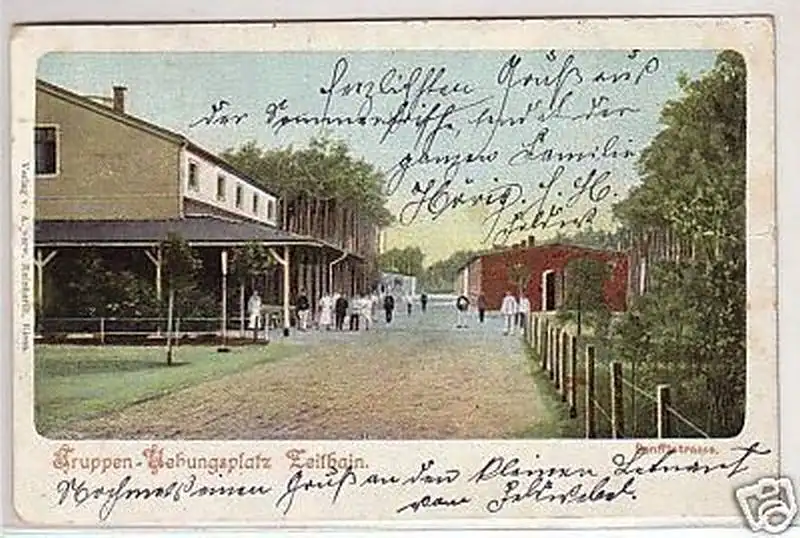 Herzlichsten Gruß aus
der Sommerfrische, sendet der
ganzen Familie
Hörig, s. H.
Feldw
Verlag v. Reinhardt, Riesa
Truppen-Uebungsplatz Zeithain.
Senfftstrasse.
Nochmals einen Gruß an den kleinen Leutnant
vom Feldwebel.